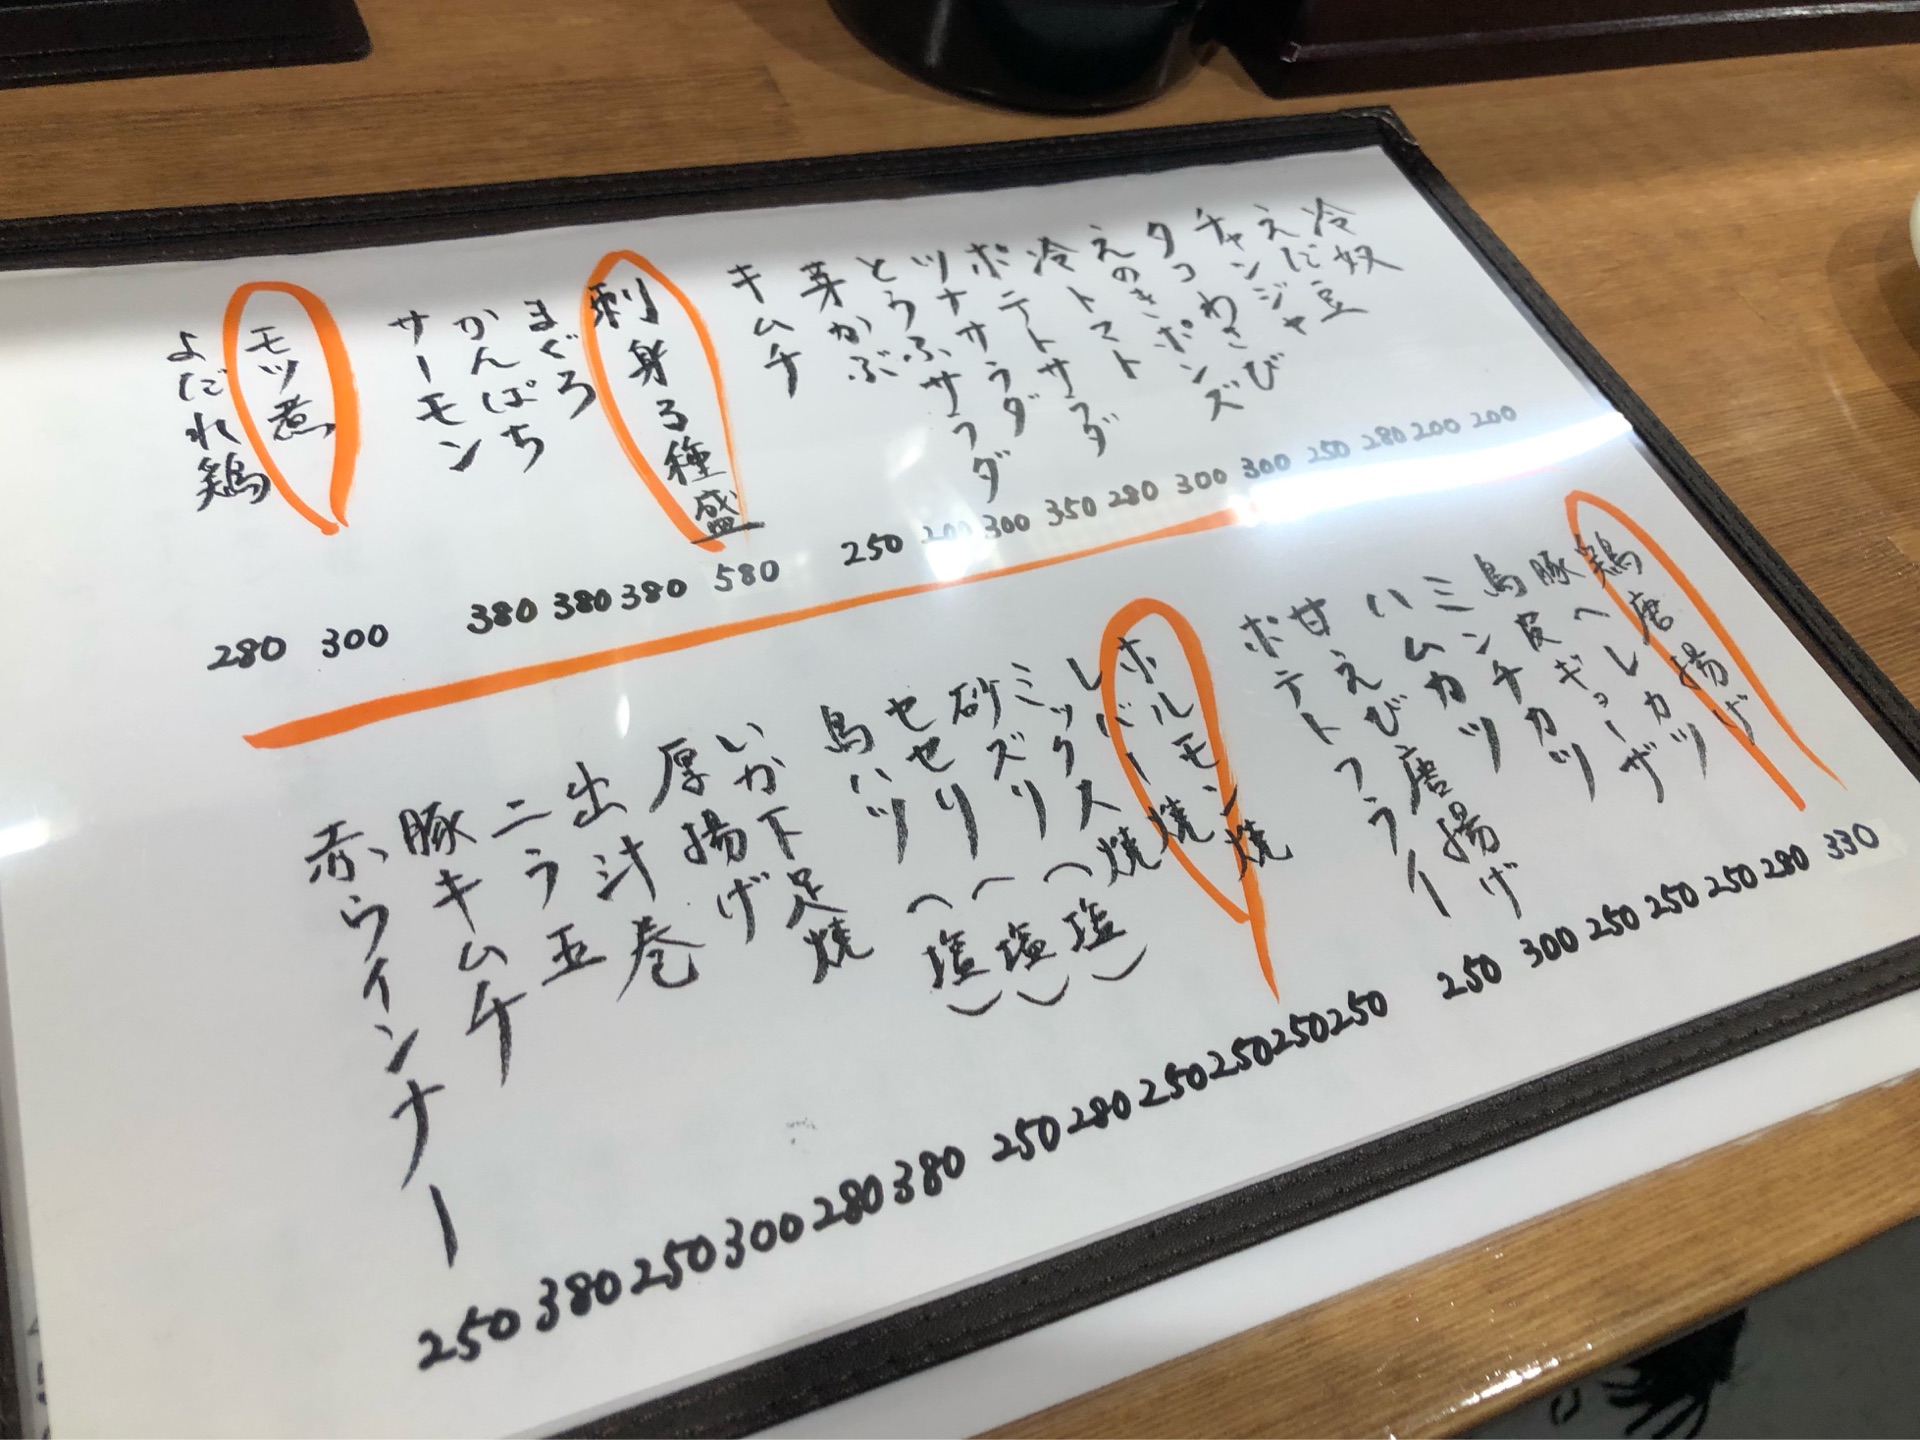 冷奴 200
えだ豆 200
チャンジャ 280
タコわさび 250
えのきポンズ 300
冷トマト 300
ポテトサラダ 280
ツナサラダ 350
とうふサラダ 300
芽かぶ 200
キムチ 250
刺身3種盛 580
まぐろ 380
かんぱち 380
サーモン 380
モツ煮 300
よだれ鶏 280
鶏唐揚げ 330
豚ヘレカツ 280
鳥皮ギョーザ 250
ミンチカツ 250
ハムカツ 250
甘えび唐揚げ 300
ポテトフライ 250
ホルモン焼 250
レバー焼 250
ミックス焼 250
砂ズリ(塩) 250
セセリ(塩) 280
鳥ハツ(塩) 250
いか下足焼 380
厚揚げ 280
出汁巻 300
ニラ玉 250
豚キムチ 380
赤ウインナー 250